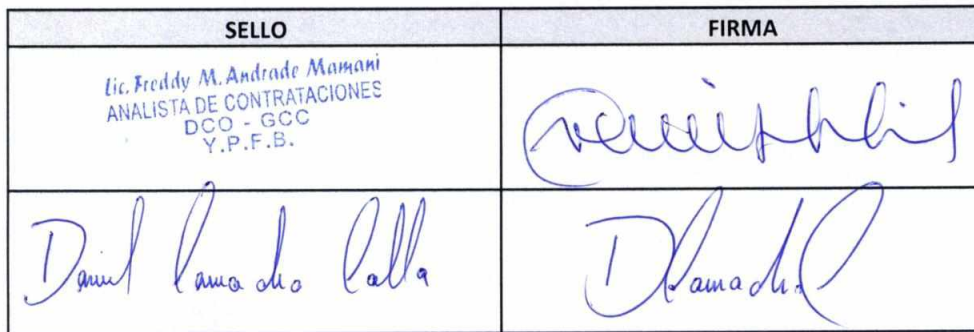 SELLO
FIRMA
Lic. Freddy M. Andrade Mamani
ANALISTA DE CONTRATACIONES
DCO - GCC
Y.P.F.B.
Daniel Camacho Calla
DCamachoC